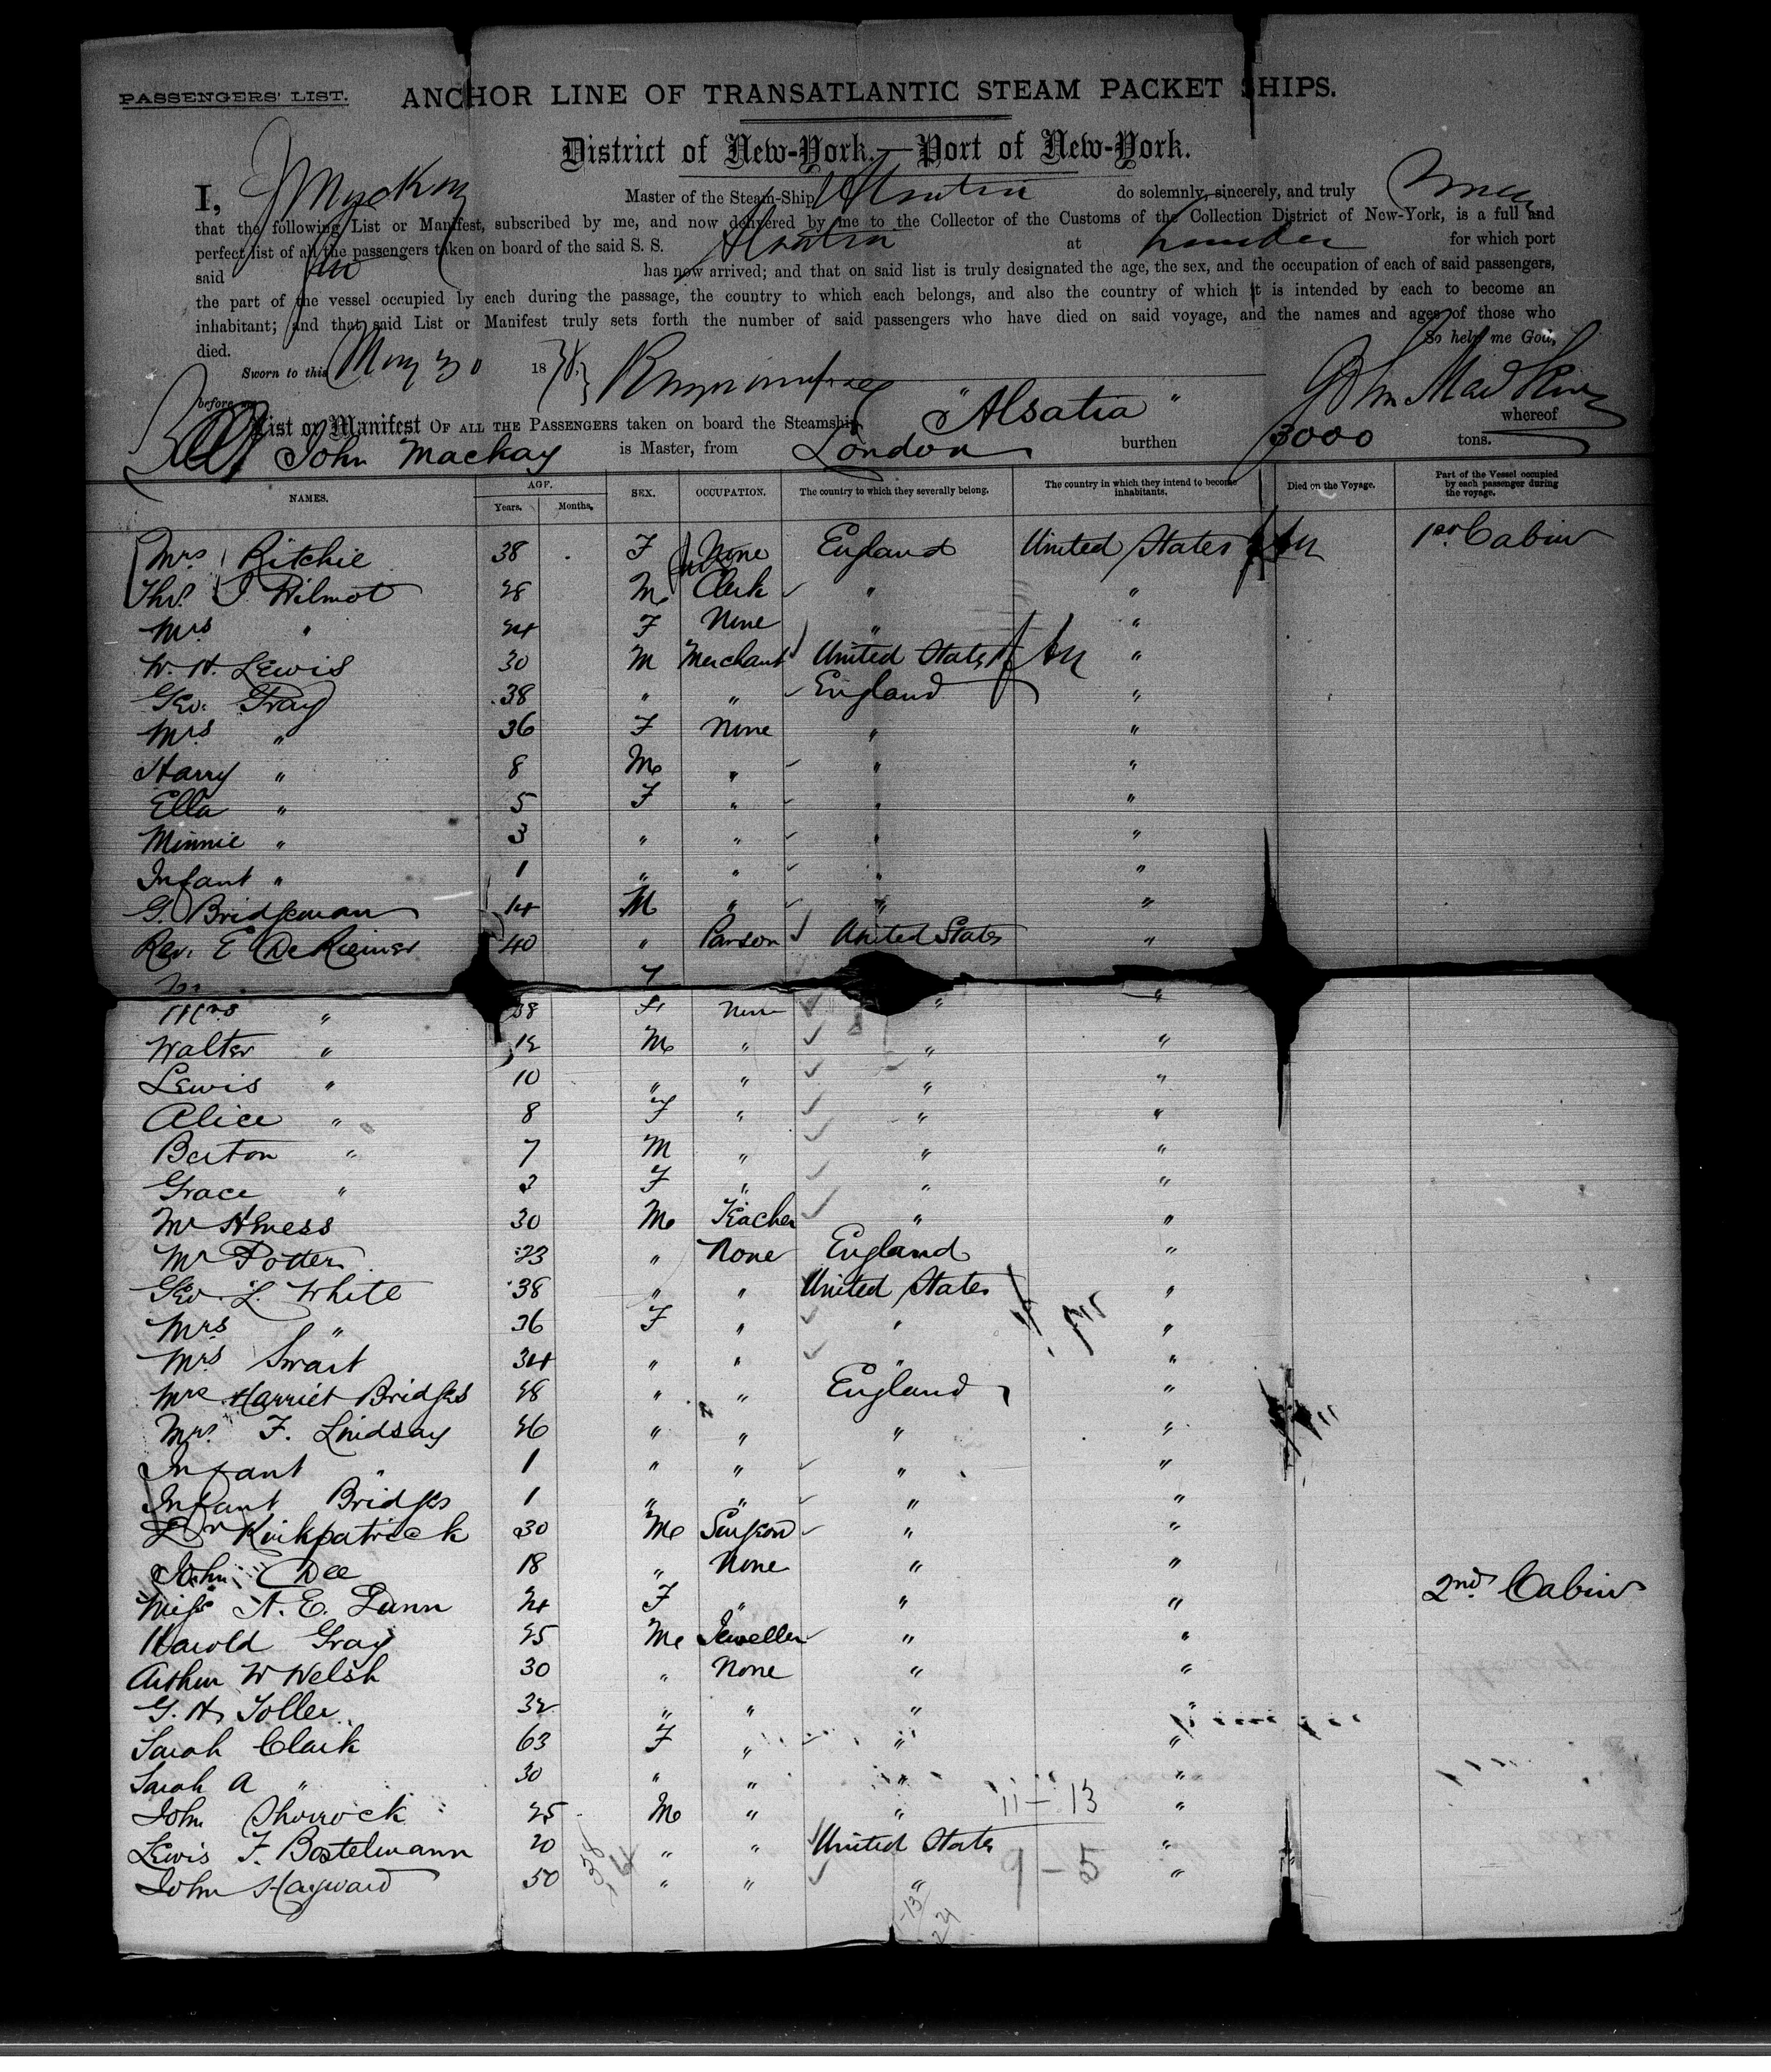 PASSENGERS' LIST.
ANCHOR LINE OF TRANSATLANTIC STEAM PACKET SHIPS.
District of New-York.—Port of New-York.
I, Master of the Steam-Ship Alsatia do solemnly, sincerely, and truly
that the following List or Manifest, subscribed by me, and now delivered by me to the Collector of the Customs of the Collection District of New-York, is a full and
perfect list of all the passengers taken on board of the said S. S. Alsatia at London for which port
said has now arrived; and that on said list is truly designated the age, the sex, and the occupation of each of said passengers,
the part of the vessel occupied by each during the passage, the country to which each belongs, and also the country of which it is intended by each to become an
inhabitant; and that said List or Manifest truly sets forth the number of said passengers who have died on said voyage, and the names and ages of those who
died. So help me God,
Sworn to this May 30 1878. John Mackay
before me
List or Manifest OF ALL THE PASSENGERS taken on board the Steamship "Alsatia" whereof
John Mackay is Master, from London burthen 3000 tons.
NAMES. AGE. Years. Months. SEX. OCCUPATION. The country to which they severally belong. The country in which they intend to become inhabitants. Died on the Voyage. Part of the Vessel occupied by each passenger during the voyage.
Mrs Ritchie 38 F None England United States 1st Cabin
Thos. J. Wilmot 28 M Clerk " "
Mrs " 24 F None " "
W. H. Lewis 30 M Merchant United States "
Geo. Gray 38 " " England "
Mrs " 36 F None " "
Harry " 8 M " " "
Ella " 5 F " " "
Minnie " 3 " " " "
Infant " 1 " " " "
G. Bridgeman 14 M " " "
Rev. E De Riemer 40 " Parson United States "
Mrs " 38 F None " "
Walter " 12 M " " "
Lewis " 10 " " " "
Alice " 8 F " " "
Barton " 7 M " " "
Grace " 3 F " " "
Mr 30 M Teacher " "
Mr Potter 23 " None England "
Geo. L. White 38 " " United States "
Mrs " 36 F " " "
Mrs Swart 34 " " " "
Mrs Harriet Bridges 28 " " England "
Mrs. F. Lindsay 26 " " " "
Infant " 1 " " " "
Infant Bridges 1 " " " "
Dr Kirkpatrick 30 M Surgeon " "
John Dee 18 " None " "
Miss A. E. Dunn 24 F " " " 2nd Cabin
Harold Gray 25 M Jeweller " "
Arthur W Welsh 30 " None " "
G. H. Toller 32 " " " "
Sarah Clark 63 F " " "
Sarah A " 30 " " " "
John Shorrock 25 M " " "
Lewis F. Bostelmann 20 " " United States "
John Hayward 50 " " " "
11-13
9-5